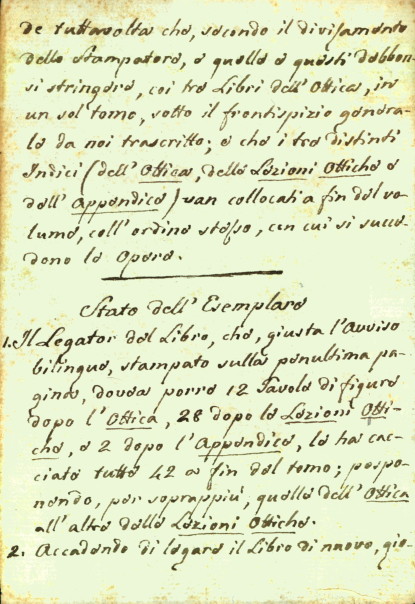 de tuttavolta che, secondo il divisamento
dello Stampatore, e quelle e questi debbon-
si stringere, coi tre Libri dell'Ottica, in
un sol tomo, sotto il frontispizio genera-
le da noi trascritto; e che i tre distinti
Indici (dell'Ottica, delle Lezioni Ottiche e
dell'Appendice) van collocati a fin del vo-
lume, coll'ordine stesso, con cui si succe-
dono le Opere.
Stato dell'Esemplare
1. Il Legator del Libro, che, giusta l'Avviso
bilingue, stampato sulla penultima pa-
gina, dovea porre 12 Tavole di figure
dopo l'Ottica, 28 dopo le Lezioni Otti-
che, e 2 dopo l'Appendice, le ha cac-
ciate tutte 42 a fin del tomo; pospo-
nendo, per soprappiù, quelle dell'Ottica
all'altre delle Lezioni Ottiche.
2. Accadendo di legare il Libro di nuovo, gio-